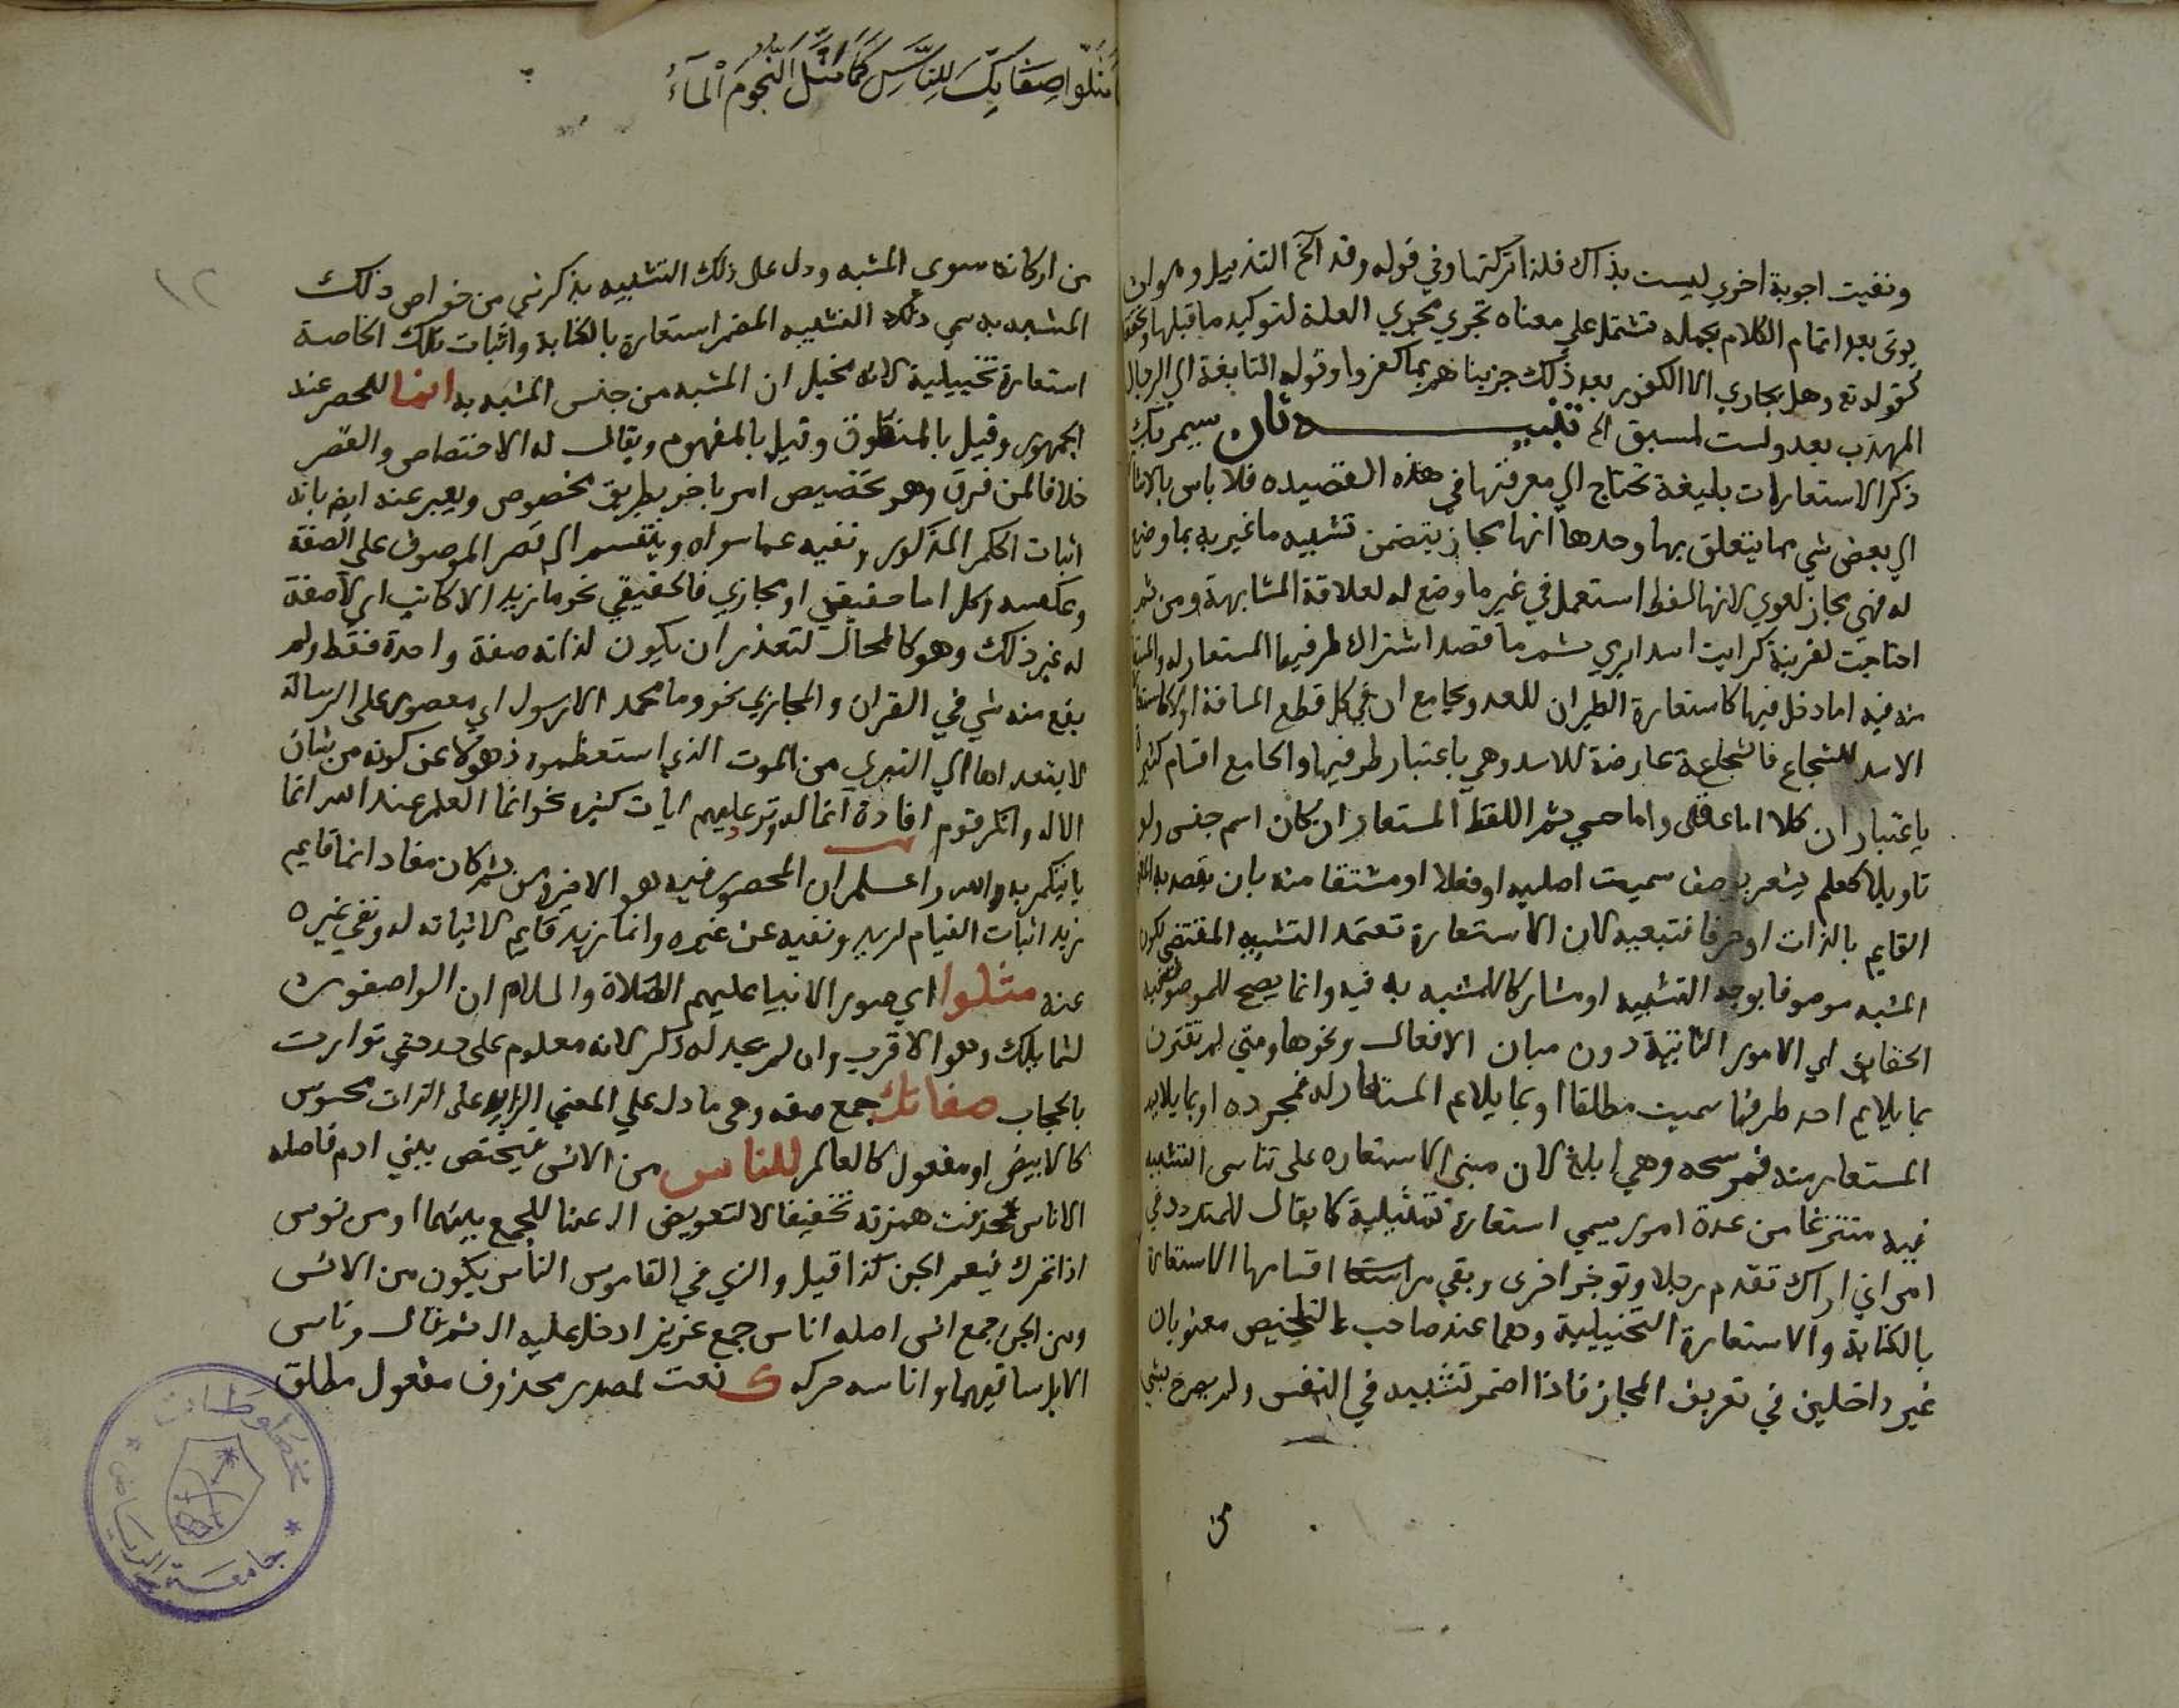 وبقيت اجوبة اخري ليست بذاك فلذا تركتها وفي قوله وقد الخ التذييل وهو ان
يوتي بعد اتمام الكلام بجمله تشتمل علي معناه تجري مجري العلة لتوكيد ما قبلها
كقوله تع وهل يجازي الا الكفور بعد ذلك جزيناهم بما كفروا وقوله النابغة اي الرجال
المهذب بعد ولست بمستبق الخ تنبيـــه ثان سيمر بك
ذكر الاستعارات بليغة تحتاج الي معرفتها في هذه القصيده فلا باس بالاشا
الي بعض شي مما يتعلق بها وحدها انها مجاز يتضمن تشبيه ما غير به بما وضع
له فهي مجاز لغوي لانها لفظ استعمل في غير ما وضع له لعلاقة المشابهة ومن ثم
احتاجت لقرينة كرايت اسدا يرمي ثم ما قصد اشتراك طرفيها المستعار له والمستعا
منه فيه اما دخل فيها كاستعارة الطيران للعدو بجامع ان في كل قطع المسافة اولا كاستعا
الاسد للشجاع فالشجاعة عارضة للاسد وهي باعتبار طرفيها والجامع اقسام كثيرة
باعتبار ان كلا اما عقلي واما حسي ثم اللفظ المستعار ان كان اسم جنس ولو
تاويلا كعلم يشعر بوصف سميت اصليه او فعلا او مشتقا منه بان يقصد به
القايم بالذات او حرفا فتبعيه لان الاستعارة تعتمد التشبيه المقتضي لكون
المشبه موصوفا بوجه التشبيه او مشاركا للمشبه به فيه وانما يصلح للموصوفيه
الحقايق اي الامور الثابتة دون معان الافعال ونحوها ومتي لم تقترن
بما يلايم احد طرفيها سميت مطلقا او بما يلايم المستعار له فمجرده او بما يلايم
المستعار منه فمرشحه وهي ابلغ لان مبني الاستعاره علي تناسي التشبيه
فيه منتزعا من عدة امور يسمي استعارة تمثيلية كما يقال للمتردد في
امر اني اراك تقدم رجلا وتوخر اخري وبقي من اقسامها الاستعارة
بالكناية والاستعارة التخييلية وهما عند صاحب التلخيص معنويان
غير داخلين في تعريف المجاز فاذا اضمر تشبيه في النفس ولم يصرح بشي
من
مَثَّلُوا صِفَاتِكَ لِلنَّاسِ كَمَا مَثَّلَ النُّجُومَ الْمَاءُ
١٢
من اركانه سوي المشبه ودل علي ذلك التشبيه بذكر شي من خواص ذلك
المشبه به سمي ذلك التشبيه المضمر استعارة بالكناية واثبات تلك الخاصة
استعارة تخييلية لانه مخيل ان المشبه من جنس المشبه به انما للحصر عند
الجمهور وقيل بالمنطوق وقيل بالمفهوم ويقال له الاختصاص والقصر
خلافا لمن فرق وهو تخصيص امر باخر بطريق مخصوص ويعبر عنه ايض بانه
اثبات الحكم المذكور ونفيه عما سواه وينقسم الي قصر الموصوف علي الصفة
وعكسه وكل اما حقيقي او مجازي فالحقيقي نحو ما زيد الا كاتب اي لا صفة
له غير ذلك وهو كالمحال لتعذر ان يكون لذاته صفة واحدة فقط ولم
يقع منه شي في القران والمجازي نحو وما محمد الا رسول اي مقصور علي الرسالة
لا يتعداها الي التبري من الموت الذي استعظموه ذهولا عن كونه من شان
الاله وانكر قوم افادة انما له وترد عليهم ايات كثيره نحو انما العلم عند الله انما
ياتيكم به الله واعلم ان المحصور فيه هو الاخير ومن ثم كان مفاد انما قايم
زيد اثبات القيام لزيد ونفيه عن غيره وانما زيد قايم لاثباته له ونفي غيره
عنه مثلوا اي صور الانبيا عليهم الصلاة والسلام ان الواصفون
لشمايلك وهو الاقرب وان لم يجد له ذكر لانه معلوم علي حد حتي توارت
بالحجاب صفاتك جمع صفه وهي ما دل علي المعني الزايد علي الذات محسوس
كالابيض او معقول كالعالم للناس من الانس فيختص ببني ادم فاصله
الاناس فحذفت همزته تخفيفا لا لتعويض ال عنها للجمع بينهما او من نوس
اذا تحرك فيعم الجن كذا قيل والذي في القاموس الناس يكون من الانس
ومن الجن جمع انس اصله اناس جمع عزيز ادخل عليه ال ثم قال وناس
الابل ساقهما واناسه حركه ك نعت لمصدر محذوف مفعول مطلق
مخطوطات
جامعة الرياض